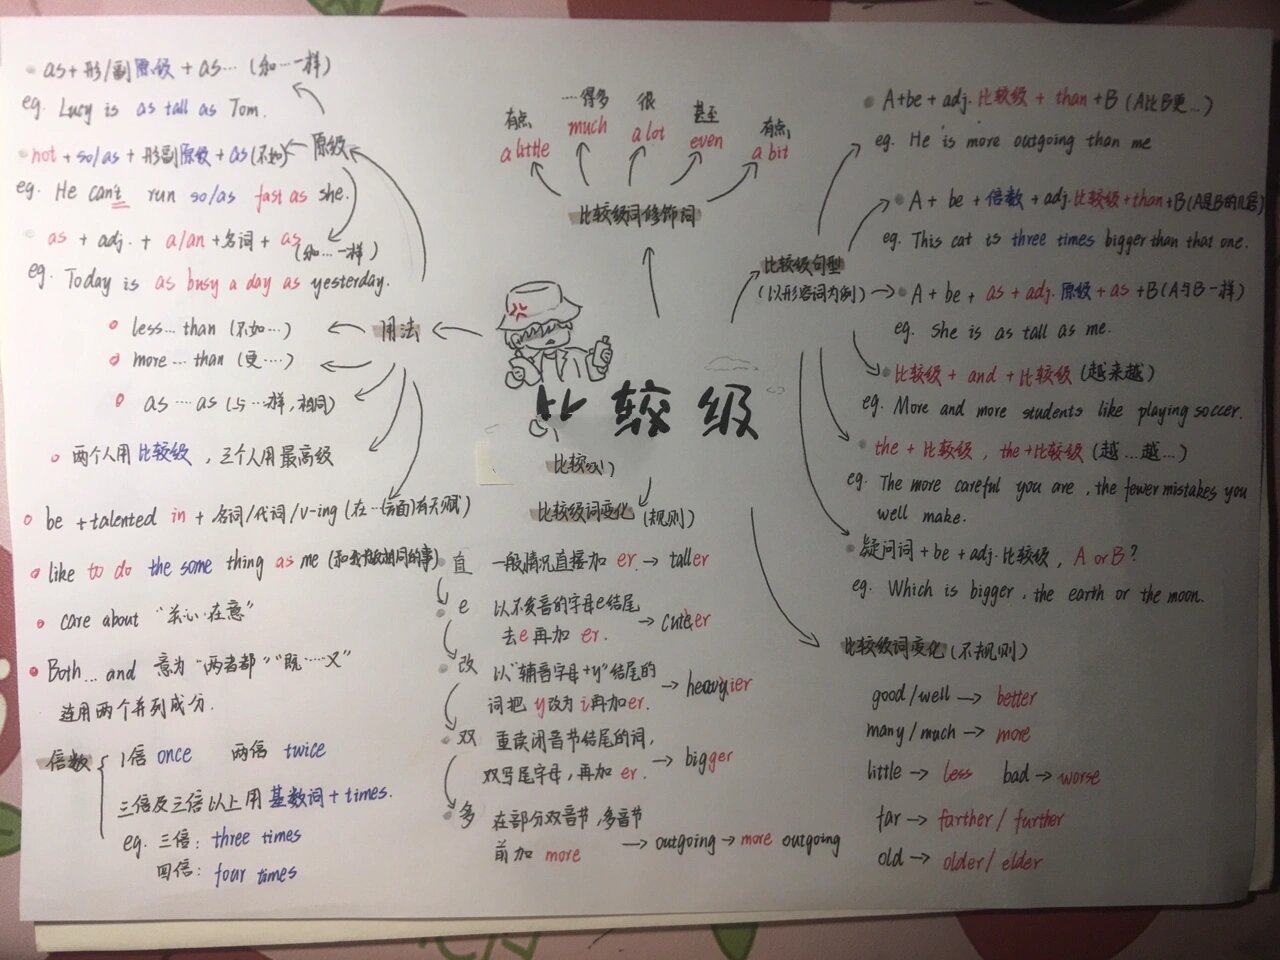 as + 形/副原级 + as… (和…一样)
eg. Lucy is as tall as Tom.
not + so/as + 形副原级 + as (不如)
原级
eg. He can't run so/as fast as she.
as + adj. + a/an + 名词 + as (和…一样)
eg. Today is as busy a day as yesterday.
用法
less… than (不如…)
more … than (更……)
as …. as (与…一样, 相同)
两个人用比较级, 三个人用最高级
be + talented in + 名词/代词/v-ing (在…方面有天赋)
like to do the some thing as me (和我做相同的事)
care about “关心·在意”
Both… and 意为“两者都”“既……又”
连用两个并列成分.
倍数
1倍 once 两倍 twice
三倍及三倍以上用基数词 + times.
eg. 三倍: three times
四倍: four times
有点 a little
…得多 much
很 a lot
甚至 even
有点 a bit
比较级词修饰词
比较级
比较级词变化 (规则)
直 一般情况直接加 er. → taller
e 以不发音的字母e结尾
去e再加 er. → cuteer
改 以“辅音字母+y”结尾的
词把 y改为 i再加er. → heavyier
双 重读闭音节结尾的词,
双写尾字母, 再加 er. → bigger
多 在部分双音节, 多音节
前加 more → outgoing → more outgoing
比较级句型
(以形容词为例)
A+be + adj. 比较级 + than +B (A比B更…)
eg. He is more outgoing than me
A + be + 倍数 + adj. 比较级+than+B(A是B的几倍)
eg. This cat is three times bigger than that one.
A + be + as + adj. 原级 + as +B(A与B一样)
eg. She is as tall as me.
比较级 + and + 比较级 (越来越)
eg. More and more students like playing soccer.
the + 比较级, the+比较级 (越…越…)
eg. The more careful you are, the fewer mistakes you
well make.
疑问词 + be + adj. 比较级, A or B?
eg. Which is bigger, the earth or the moon.
比较级词变化 (不规则)
good/well → better
many/much → more
little → less bad → worse
far → farther / further
old → older / elder